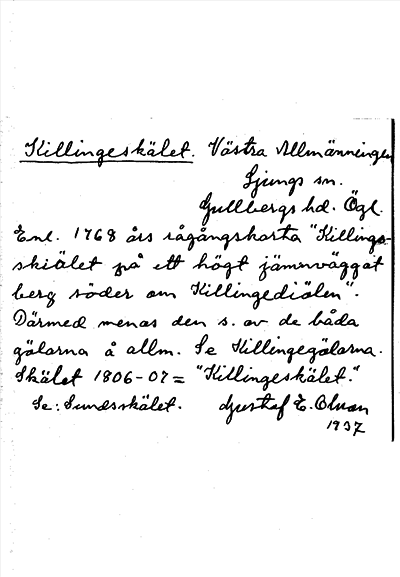 Killingeskälet. Västra Allmänningen
Ljungs sn.
Gullbergs hd. Ögl.
Enl. 1768 års rågångskarta "Killings-
skiälet på ett högt jämnväggat
berg söder om Killingediälen".
Därmed menas den s. av de båda
gölarna å allm. Se Killingegölarna.
Skälet 1806-07 = "Killingeskälet."
Se: Sundsskälet. Gustaf E. Olsson
1937